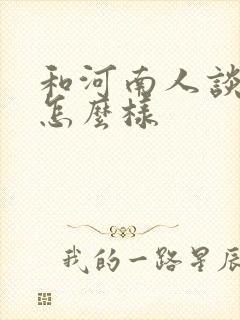 和河南人談
怎麼樣
我的一路星辰